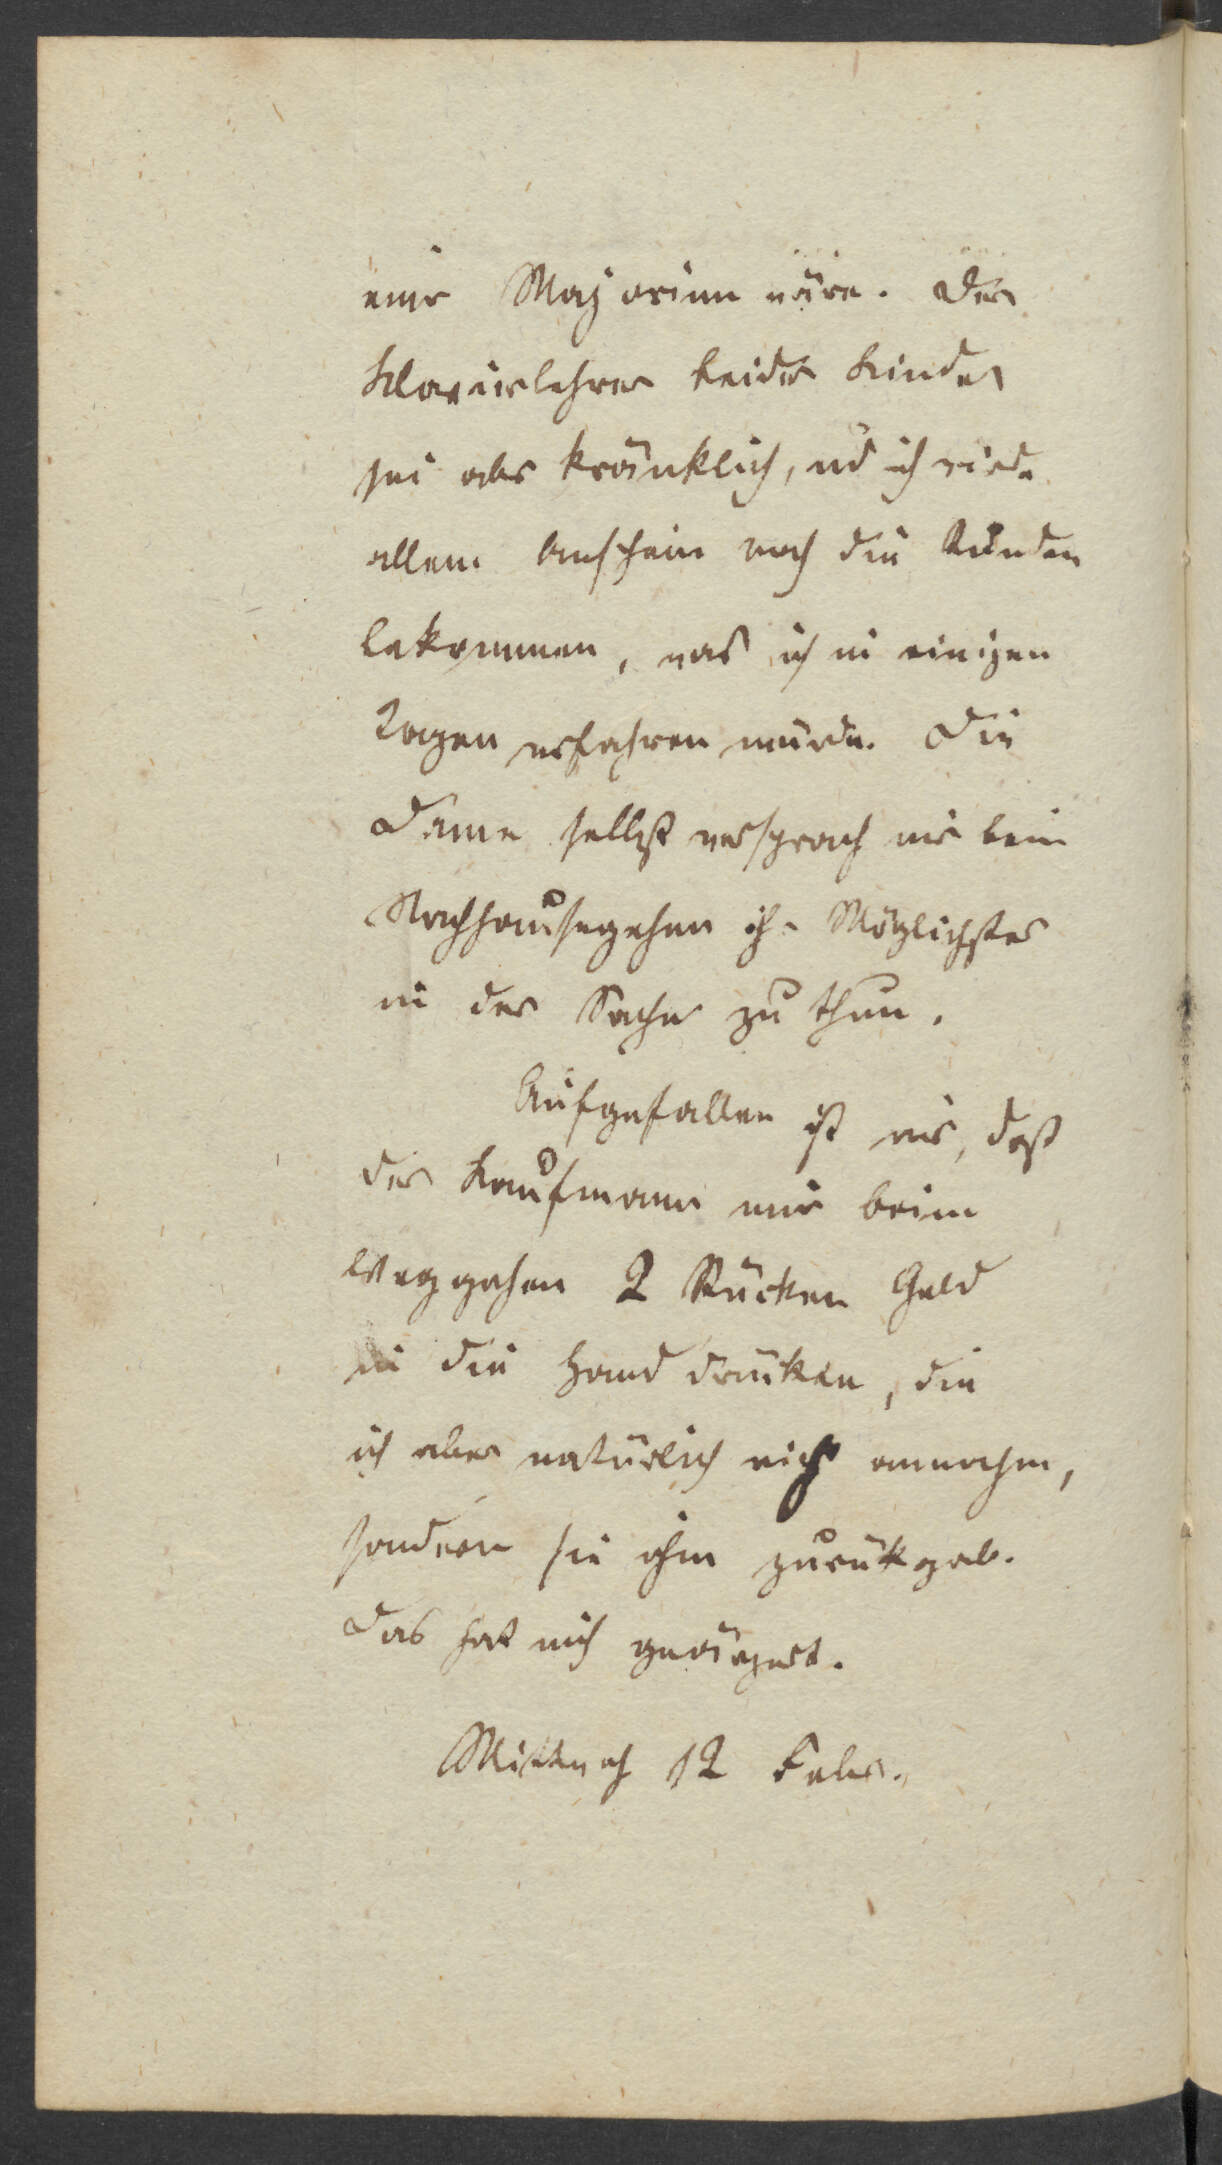 eine Majorinn wäre. Der
Klavierlehrer beider Kinder
sei aber kränklich, und ich würde
allem Anschein nach die Stunden
bekommen, was ich in einigen
Tagen erfahren würde. Die
Dame selbst versprach mir beim
Nachhausegehen ihr Möglichstes
in der Sache zu thun.
Aufgefallen ist mir, daß
der Kaufmann mir beim
Weggehen 2 Stücken Geld
in die Hand drückte, die
ich aber natürlich nicht annahm,
sondern sie ihm zurükgab.
Das hat mich geärgert.
Mittwoch 12 Febr.